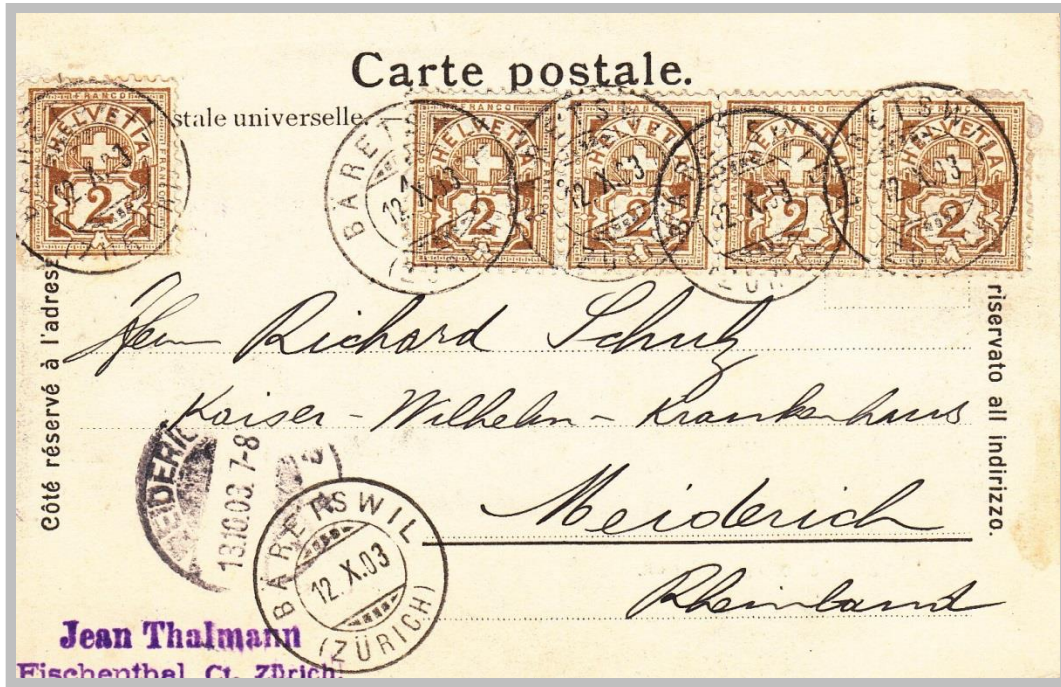 Carte postale.
stale universelle.
FRANCO
HELVETIA
2
FRANCO
HELVETIA
2
FRANCO
HELVETIA
2
FRANCO
HELVETIA
2
FRANCO
HELVETIA
2
BÄRETSWIL
12.X.03
(ZÜRICH)
Côté réservé à l'adresse
riservato all indirizzo.
Herrn Richard Schulz
Kaiser-Wilhelm-Krankenhaus
Meiderich
Rheinland
MEIDERICH
13.10.03. 7-8
BÄRETSWIL
12.X.03
(ZÜRICH)
Jean Thalmann
Fischenthal Ct. Zürich.